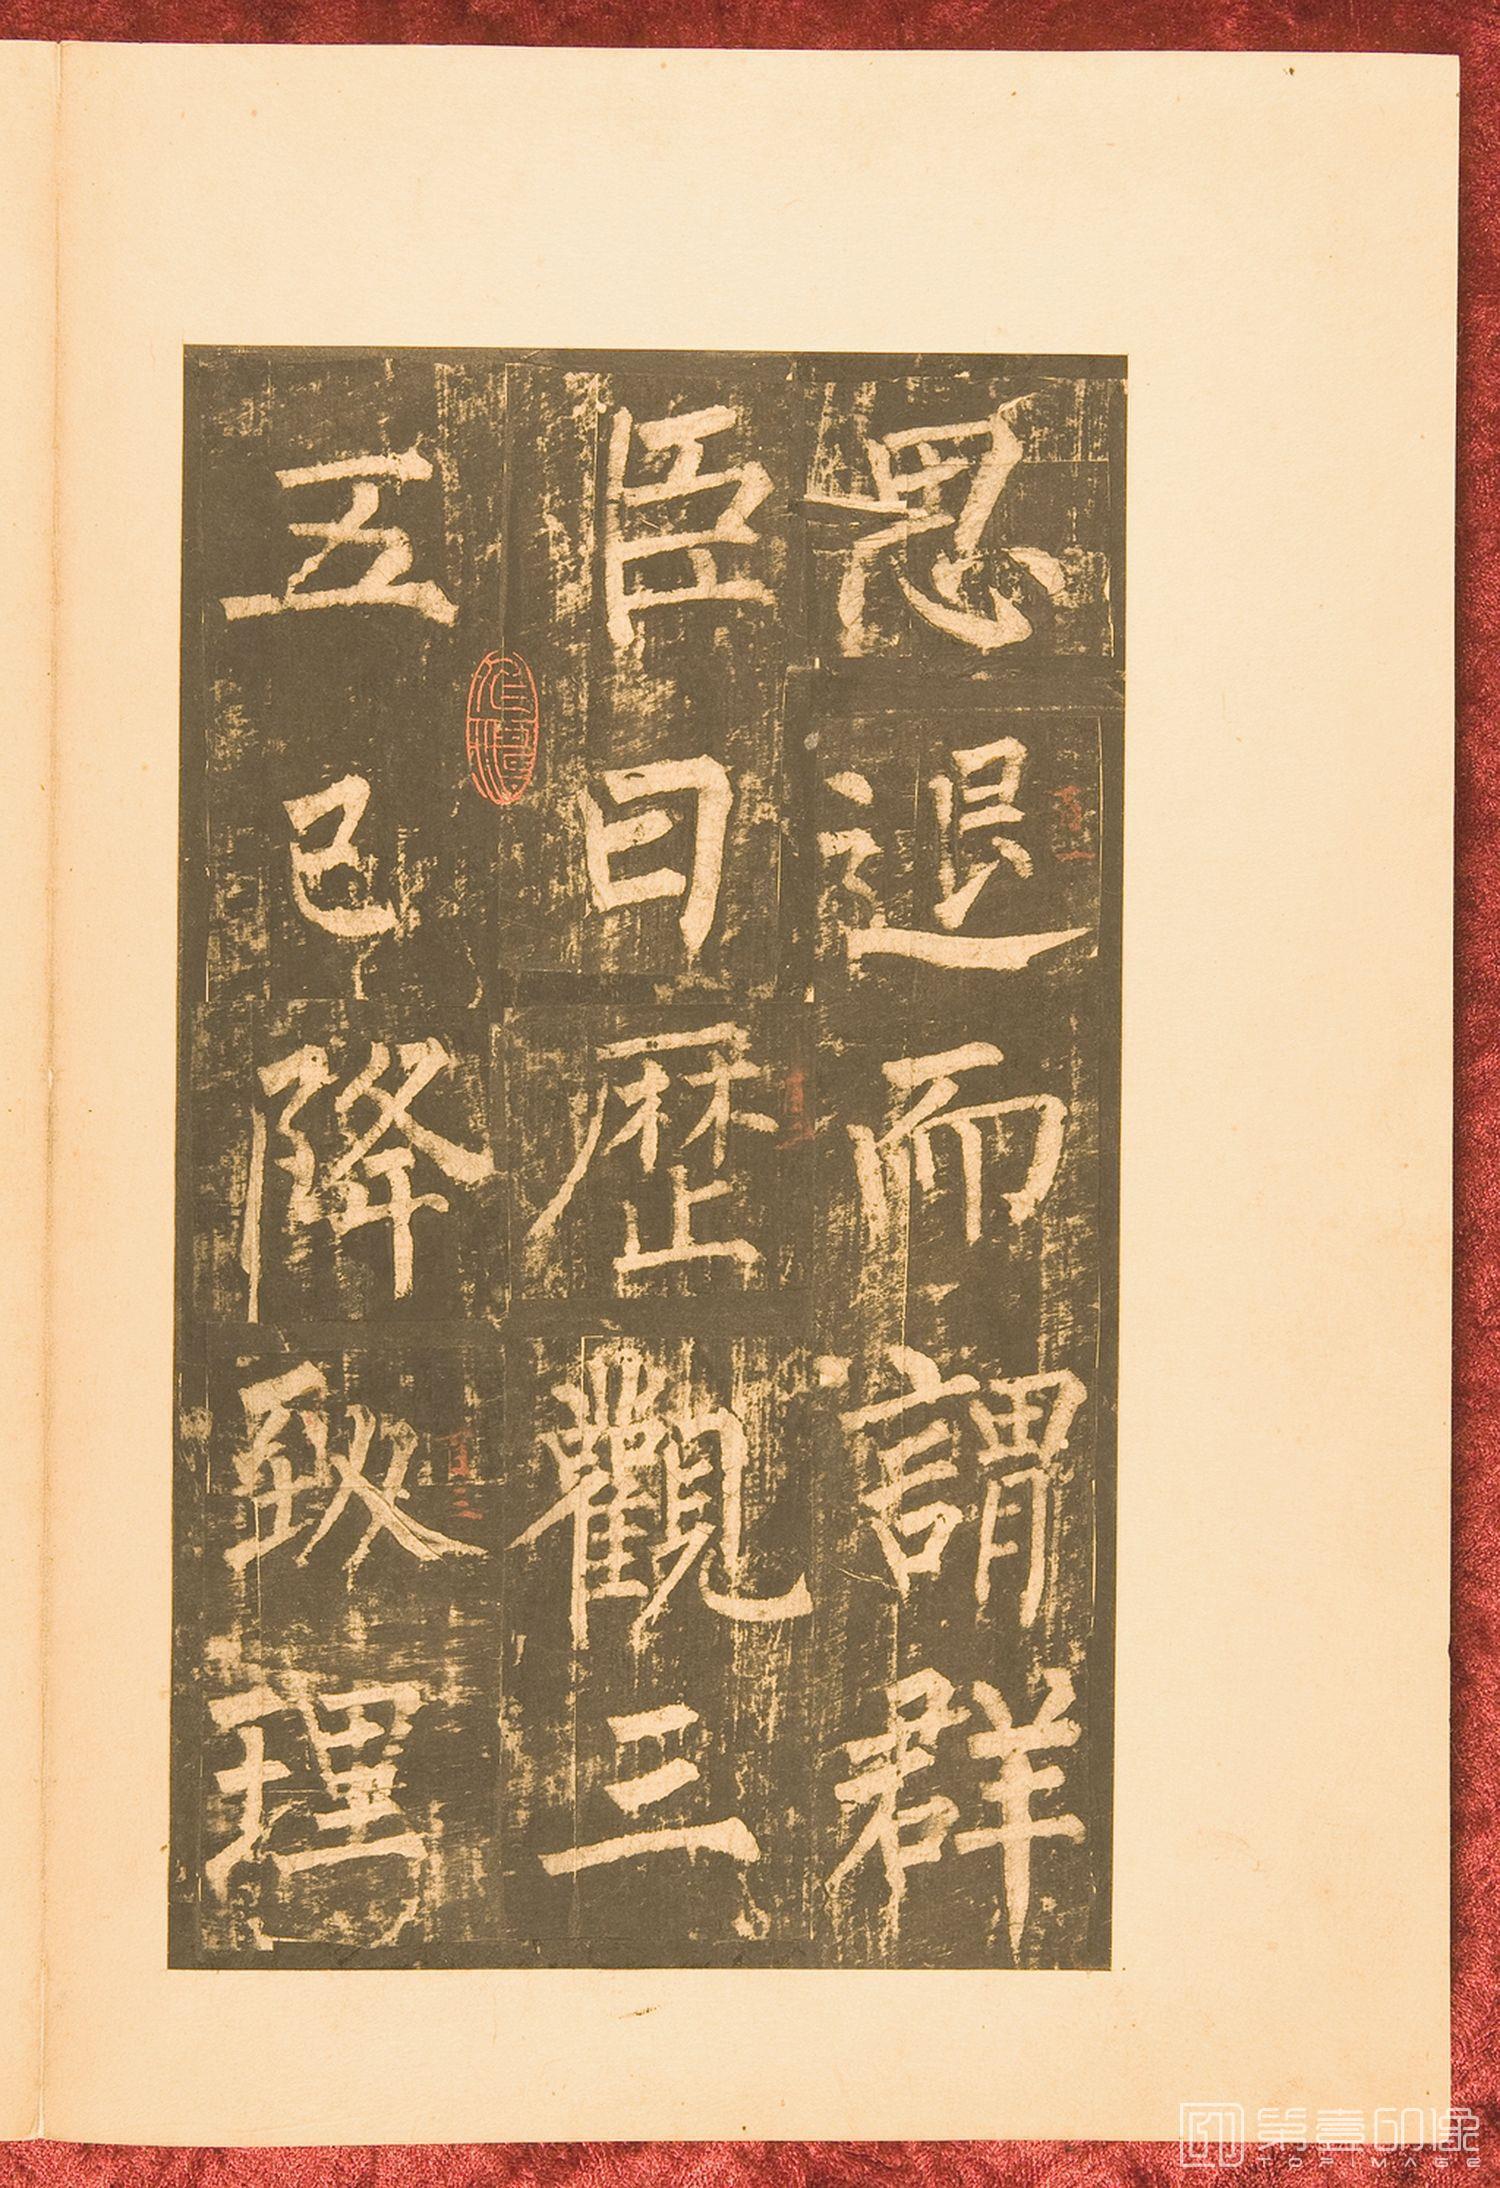 思退而謂群
臣曰歷觀三
五已降致理
第壹印像
TOPIMAGE